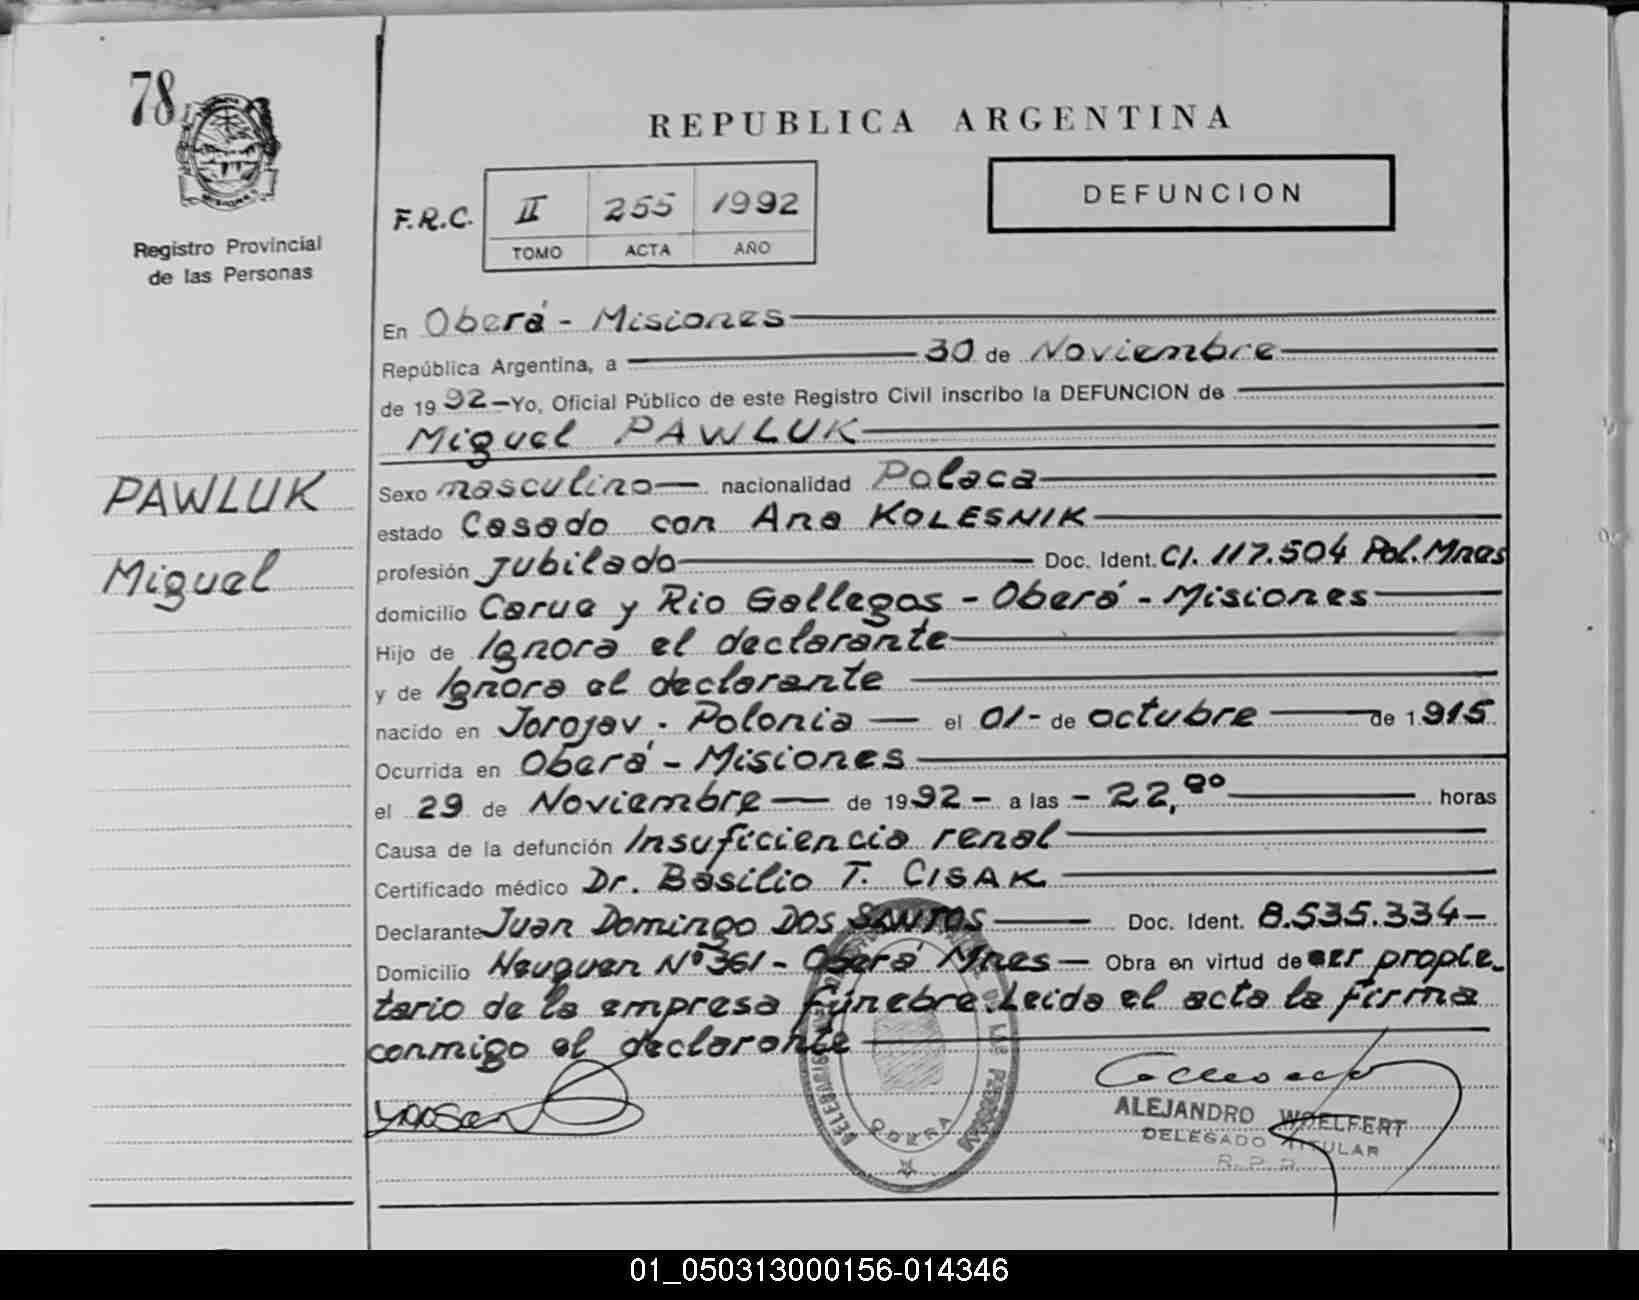 78
REPUBLICA ARGENTINA
DEFUNCION
F.R.C. II 255 1992
TOMO ACTA AÑO
Registro Provincial
de las Personas
En Oberá - Misiones
República Argentina, a 30 de Noviembre
de 1992 - Yo, Oficial Público de este Registro Civil inscribo la DEFUNCION de
Miguel PAWLUK
PAWLUK
Miguel
Sexo masculino nacionalidad Polaca
estado Casado con Ana KOLESNIK
profesión jubilado Doc. Ident. CI. 117.504 Pol. Mnes
domicilio Carue y Rio Gallegos - Oberá - Misiones
Hijo de Ignora el declarante
y de Ignora el declarante
nacido en Jorojav - Polonia el 01 - de octubre de 1.915
Ocurrida en Oberá - Misiones
el 29 de Noviembre de 1992 - a las - 22, horas
Causa de la defunción Insuficiencia renal
Certificado médico Dr. Basilio T. CISAK
Declarante Juan Domingo DOS SANTOS Doc. Ident. 8.535.334 -
Domicilio Neuquen Nº 361 - Oberá Mnes - Obra en virtud de ser propie-
tario de la empresa fúnebre. Leida el acta la firma
conmigo el declarante
ALEJANDRO WOELFERT
DELEGADO TITULAR
R. P. P.
01_050313000156-014346